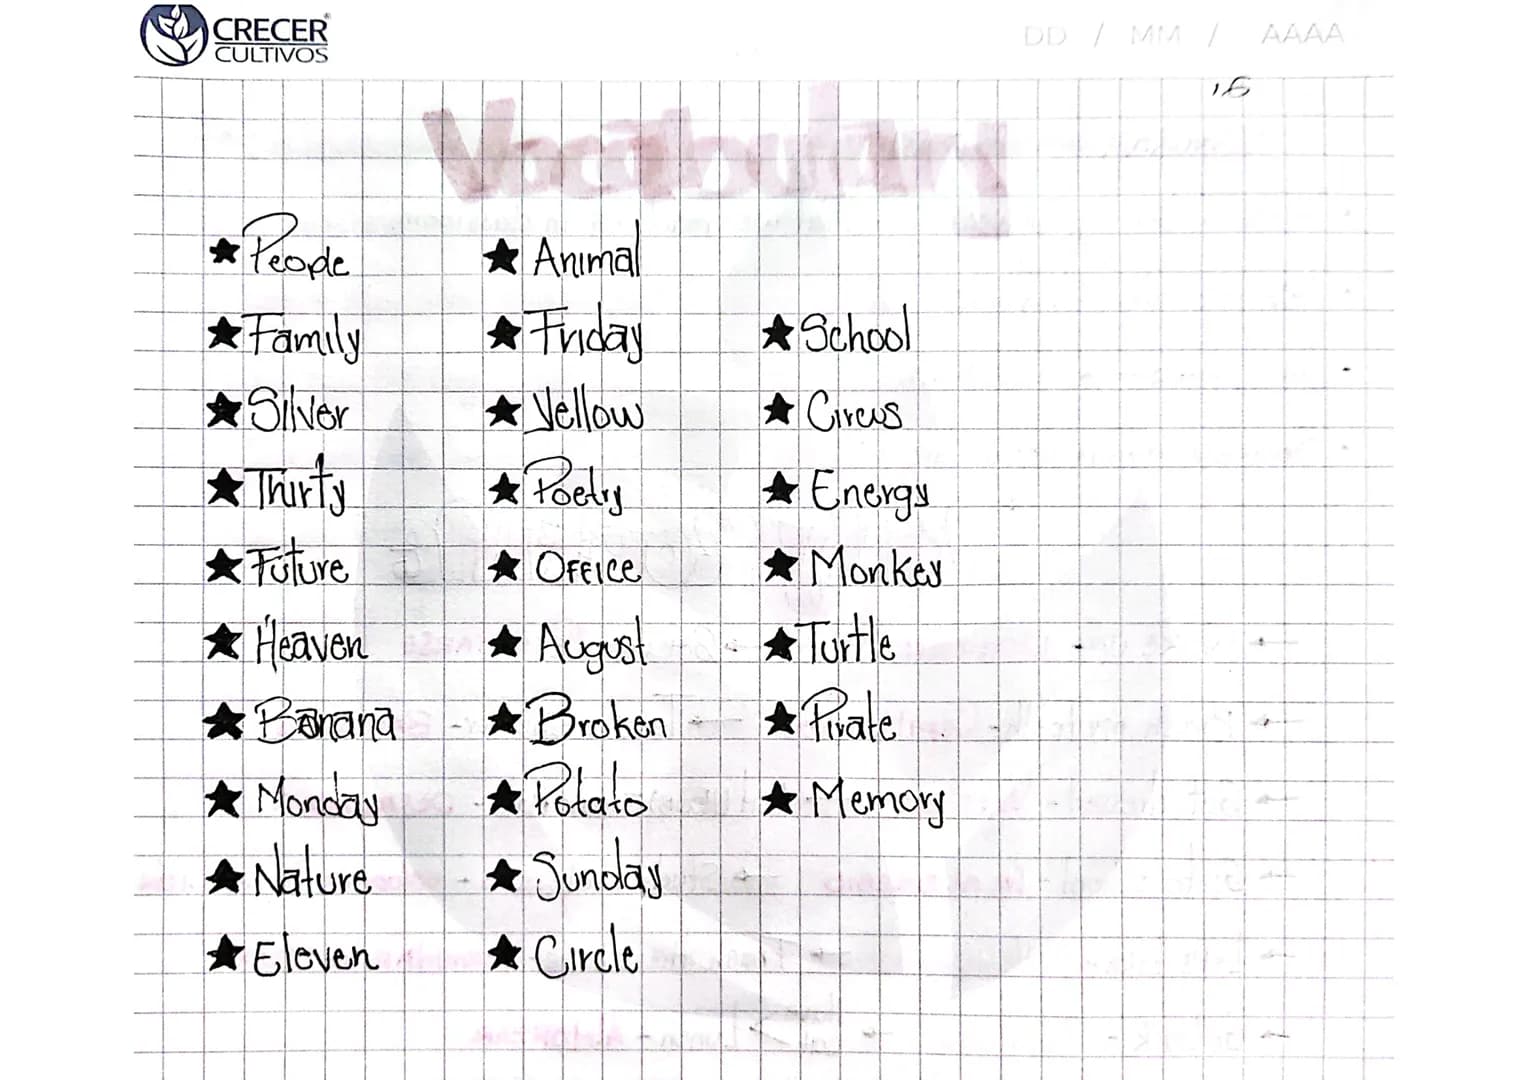 CRECER
CULTIVOS
DD / MM / AAAA
16
Vocabulary
People
Family
Silver
Thirty
Future
Heaven
Banana
Monday
Nature
Eleven
Animal
Friday
Yellow
Poetry
Office
August
Broken
Potato
Sunday
Circle
School
Circus
Energy
Monkey
Turtle
Pirate
Memory